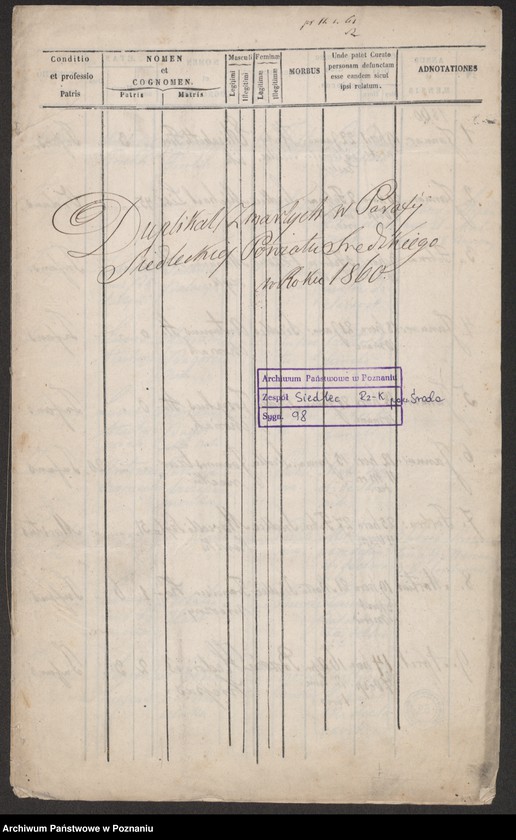 Conditio
et professio
Patris
NOMEN
et
COGNOMEN.
Patris
Matris
Masculi
Legitimi
Illegitimi
Feminae
Legitimae
Illegitimae
MORBUS
Unde patet Curato
personam defunctam
esse eandem sicut
ipsi relatum.
ADNOTATIONES
Duplikat Zmarłych w Parafij
Siedleckiej Powiatu Średzkiego
w Roku 1860
Archiwum Państwowe w Poznaniu
Zespół Siedlec Rz-K pow. Środa
Sygn. 98
Archiwum Państwowe w Poznaniu